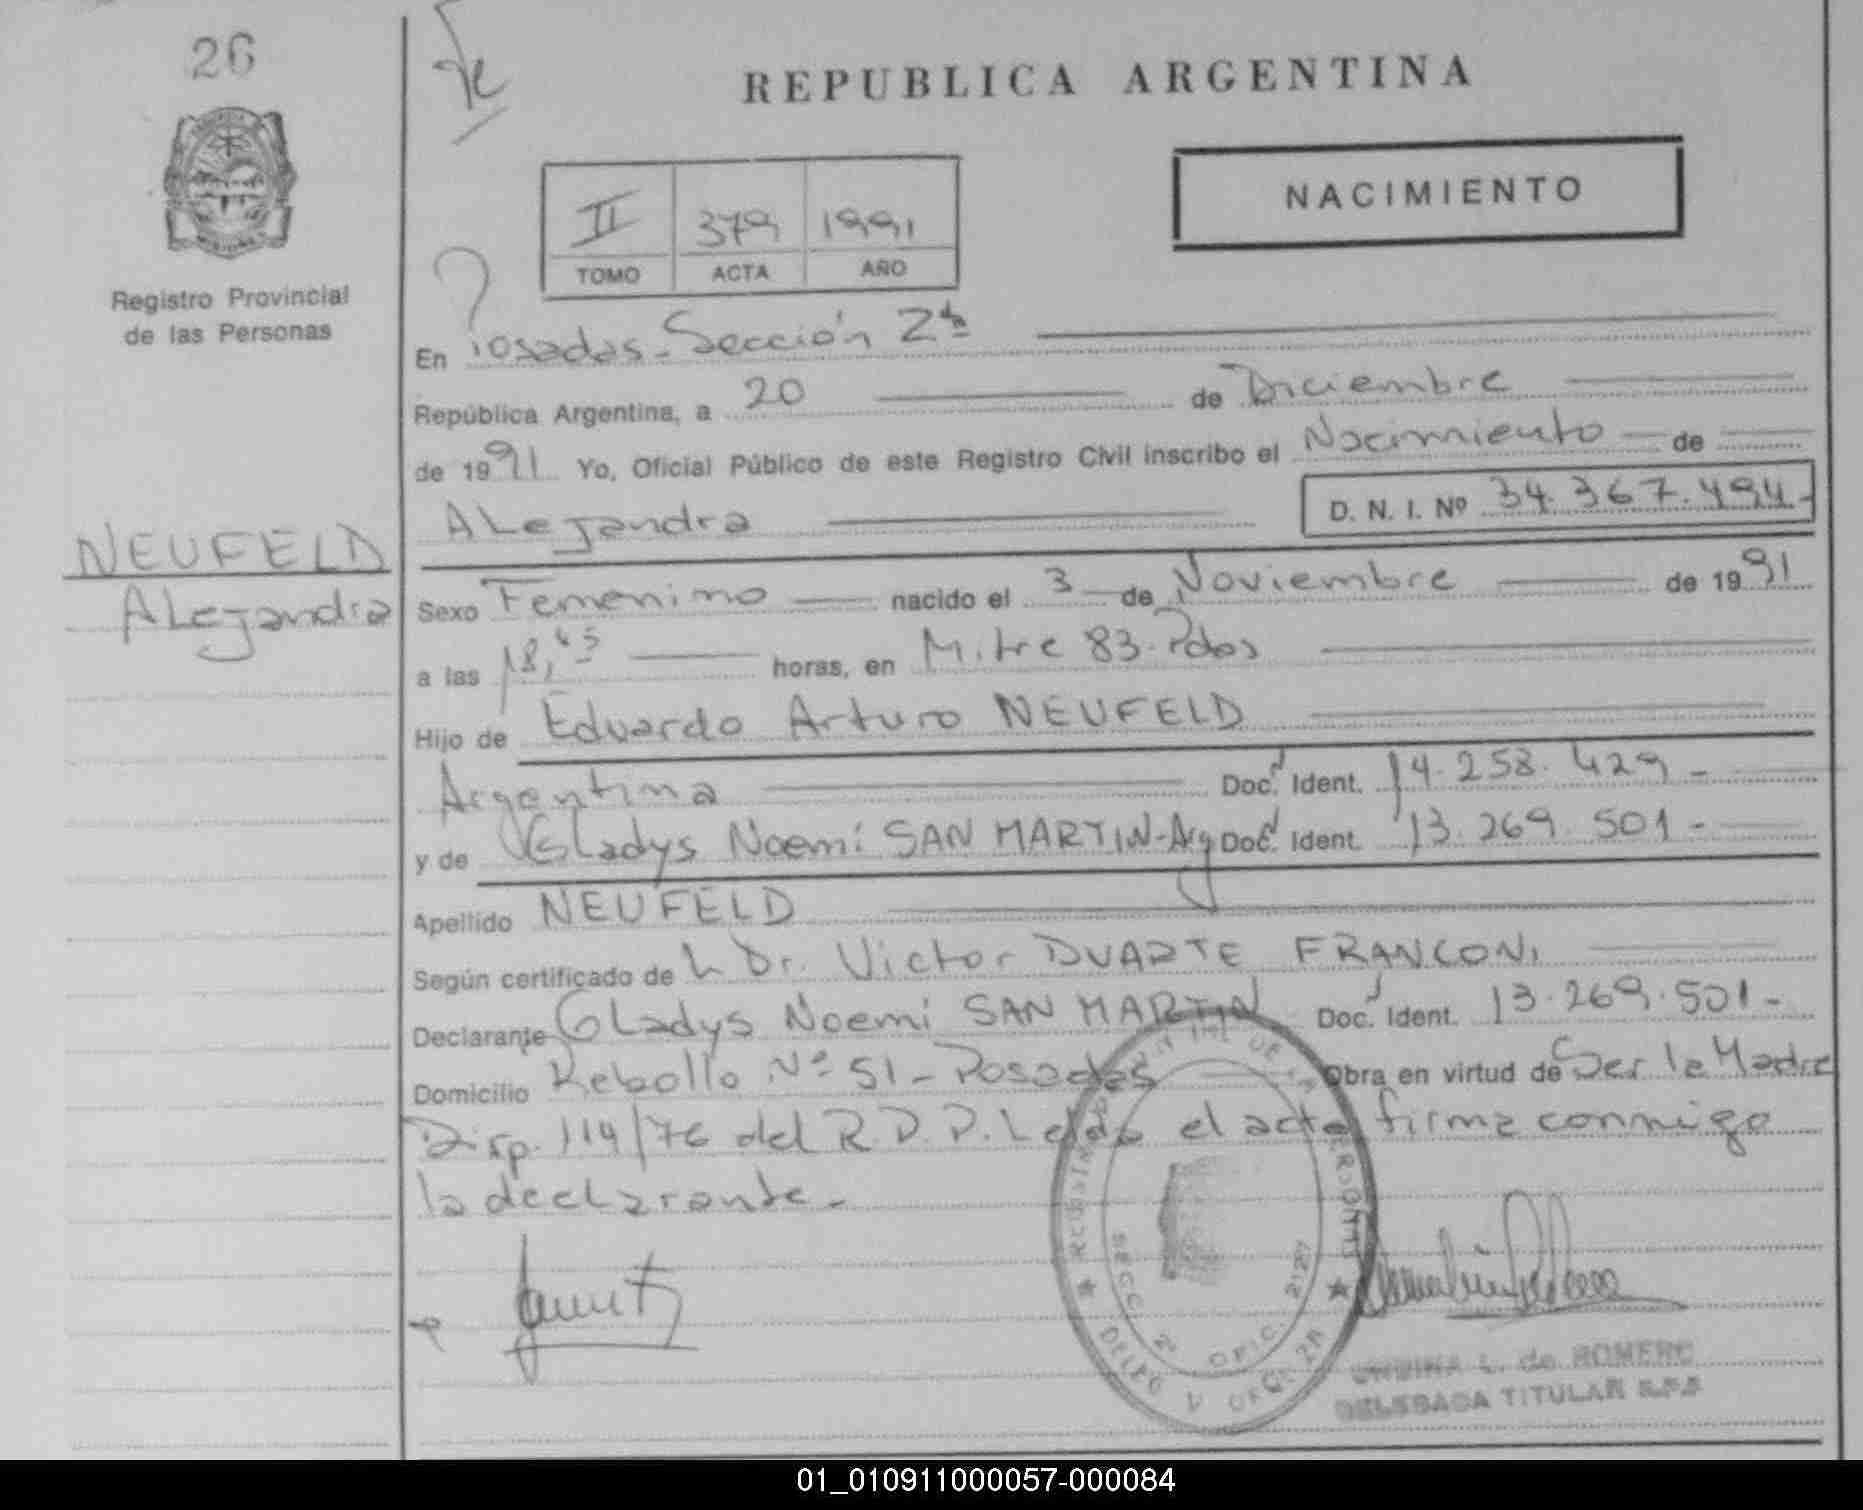 26
REPUBLICA ARGENTINA
NACIMIENTO
II 379 1991
TOMO ACTA AÑO
Registro Provincial
de las Personas
En Posadas - Sección 2ª
República Argentina, a 20 de Diciembre
de 1991 Yo, Oficial Público de este Registro Civil inscribo el Nacimiento de
ALejandra D. N. I. Nº 34.367.494-
NEUFELD
ALejandra
Sexo Femenino nacido el 3 de Noviembre de 1991
a las 18,45 horas, en Mitre 83. Pdas
Hijo de Eduardo Arturo NEUFELD
Argentina Doc. Ident. 14.258.429-
y de Gladys Noemí SAN MARTIN-Arg Doc. Ident. 13.269.501-
Apellido NEUFELD
Según certificado de L Dr. Victor DUARTE FRANCONI
Declarante GLadys Noemi SAN MARTIN Doc. Ident. 13.269.501-
Domicilio Rebollo Nº 51 - Posadas Obra en virtud de Ser la Madre
Disp. 114/76 del R.D.P. Leída el acta firma conmigo
la declarante.-
SECC. 2ª OFIC. 2127
L. de ROMERO
DELEGADA TITULAR R.P.P
01_010911000057-000084